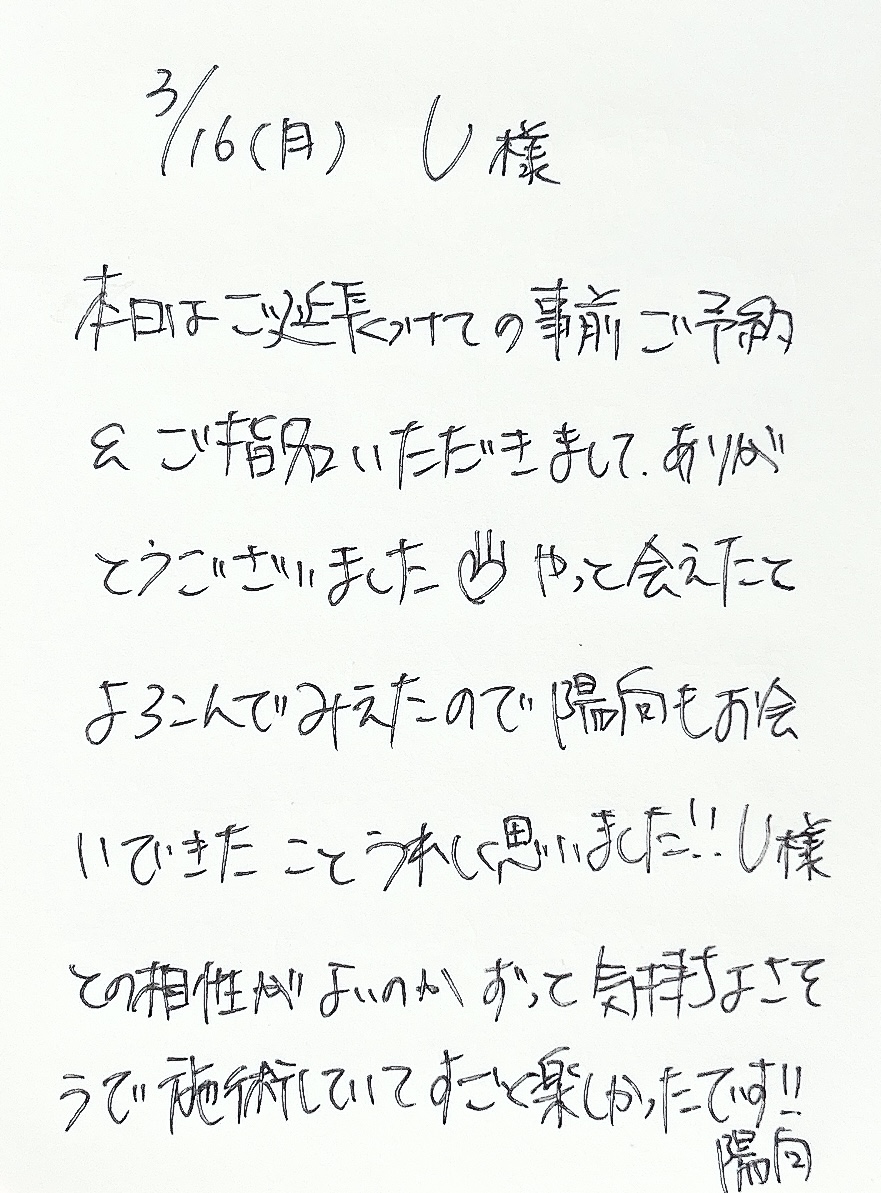 3/16(月) し様
本日はご延長かけての事前ご予約
& ご指名いただきまして、ありが
とうございました やっと会えたと
よろこんでみえたので陽向もお会
いできたことうれしく思いました!!し様
との相性がよいのかずっと気持ちよさそ
うで施術していてすごく楽しかったです!!
陽向